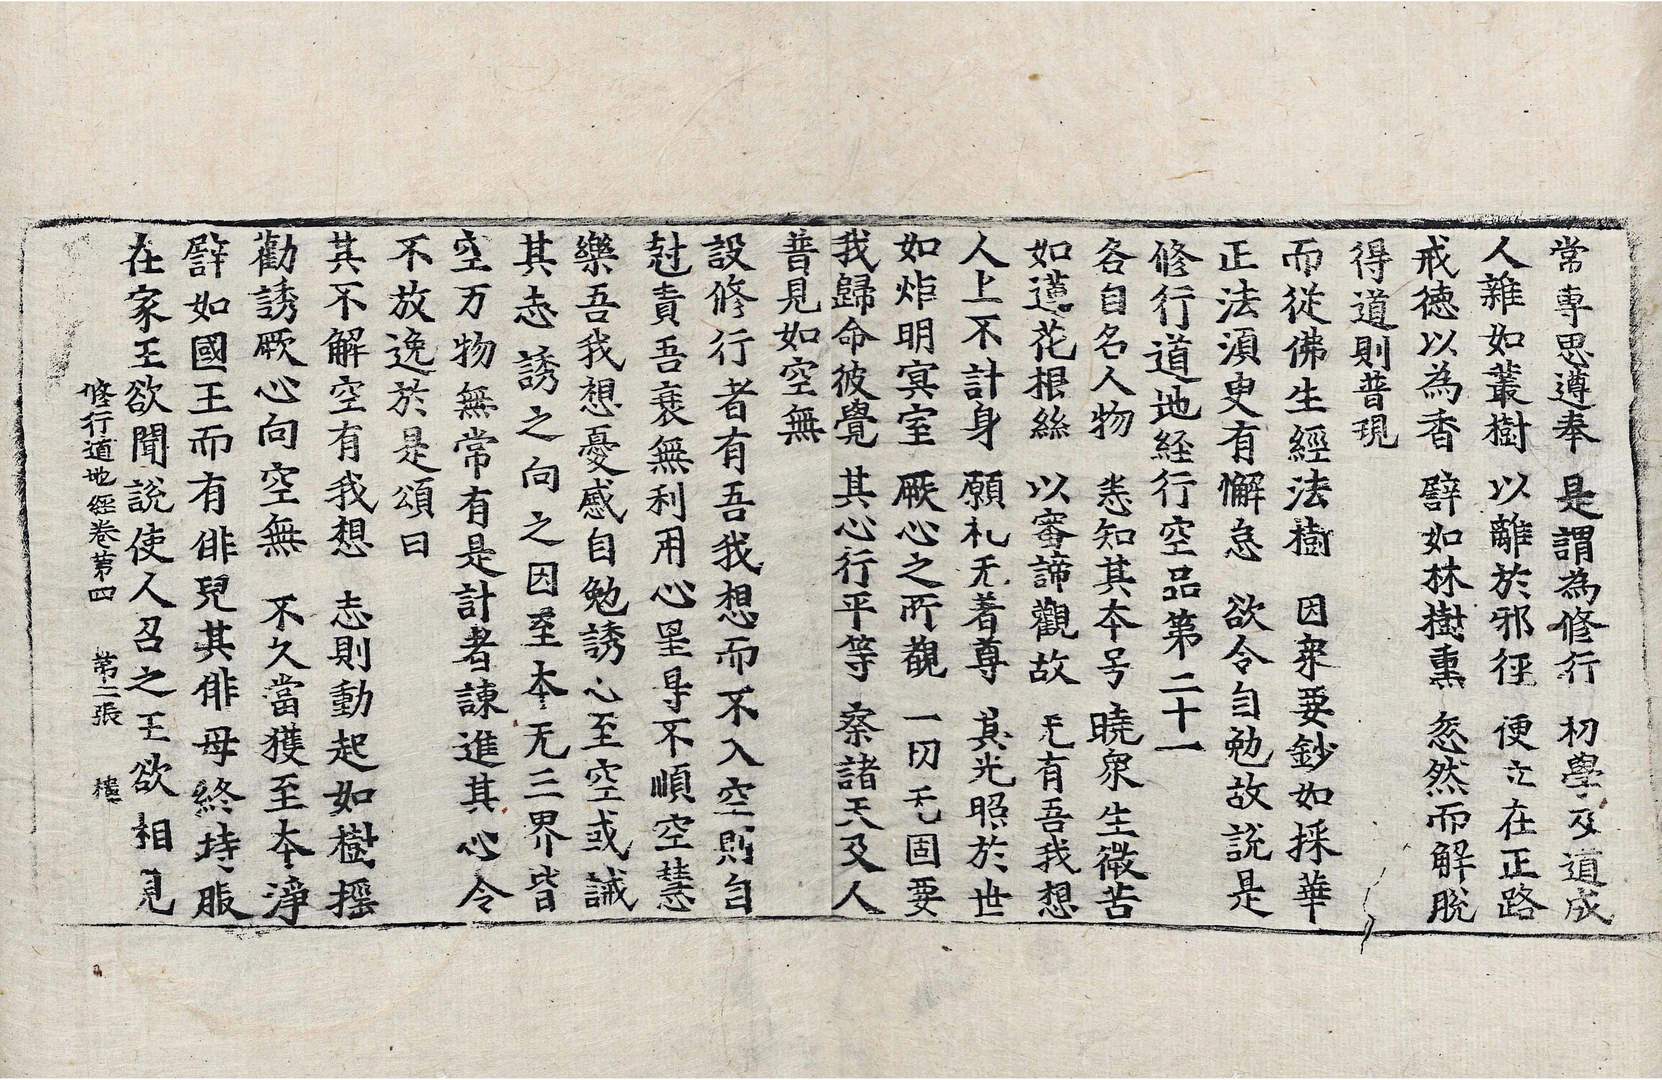 常專思遵奉 是謂為修行 初學及道成
人雜如叢樹 以離於邪徑 便立在正路
戒德以為香 譬如林樹熏 忽然而解脫
得道則普現
而從佛生經法樹 因衆要鈔如採華
正法須臾有懈怠 欲令自勉故說是
修行道地経行空品第二十一
各自名人物 悉知其夲号 曉衆生微苦
如蓮花根絲 以審諦觀故 无有吾我想
人上不計身 願礼无著尊 其光照於世
如炬明冥室 厥心之所覩 一切无固要
我歸命彼覺 其心行平等 察諸天及人
普見如空無
設修行者有吾我想而不入空則自
尅責吾衰無利用心罣㝵不順空慧
樂吾我想憂慼自勉誘心至空或誡
其志誘之向之因至夲无三界皆
空万物無常有是計者諫進其心令
不放逸於是頌曰
其不解空有我想 志則動起如樹揺
勸誘厥心向空無 不久當獲至夲淨
譬如國王而有俳兒其俳母終持服
在家王欲聞說使人召之王欲相見
修行道地經卷第四 第二張